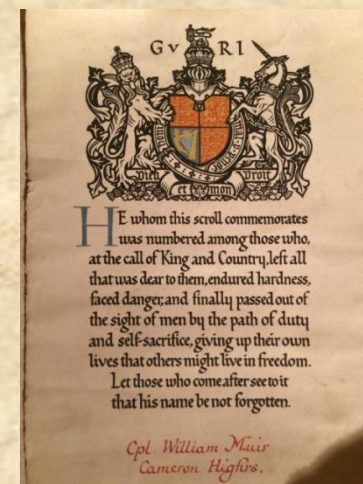 G V R I
Dieu et mon Droit
HE whom this scroll commemorates
was numbered among those who,
at the call of King and Country, left all
that was dear to them, endured hardness,
faced danger, and finally passed out of
the sight of men by the path of duty
and self-sacrifice, giving up their own
lives that others might live in freedom.
Let those who come after see to it
that his name be not forgotten.
Cpl. William Muir
Cameron Highrs.